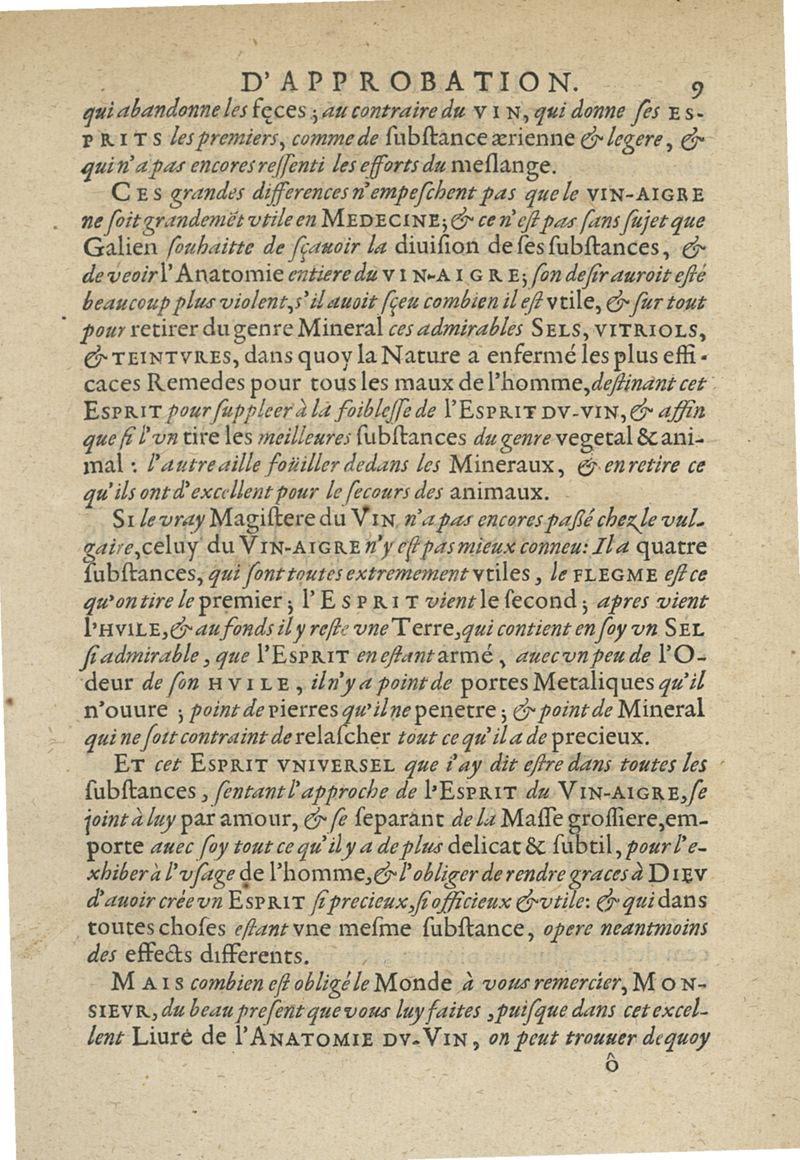 D'APPROBATION. 9
qui abandonne les fęces ; au contraire du VIN, qui donne ſes ES-
PRITS les premiers, comme de ſubſtance ærienne & legere, &
qui n'a pas encores reſſenti les efforts du meſlange.
CES grandes differences n'empeſchent pas que le VIN-AIGRE
ne ſoit grandemēt vtile en MEDECINE; & ce n'eſt pas ſans ſujet que
Galien ſouhaitte de ſçauoir la diuiſion de ſes ſubſtances, &
de veoir l'Anatomie entiere du VIN-AIGRE; ſon deſir auroit eſté
beaucoup plus violent, s'il auoit ſçeu combien il eſt vtile, & ſur tout
pour retirer du genre Mineral ces admirables SELS, VITRIOLS,
& TEINTVRES, dans quoy la Nature a enfermé les plus effi-
caces Remedes pour tous les maux de l'homme, deſtinant cet
ESPRIT pour ſuppleer à la foibleſſe de l'ESPRIT DV-VIN, & affin
que ſi l'vn tire les meilleures ſubſtances du genre vegetal & ani-
mal : l'autre aille foüiller dedans les Mineraux, & en retire ce
qu'ils ont d'excellent pour le ſecours des animaux.
SI le vray Magiſtere du VIN n'a pas encores paßé chez le vul-
gaire, celuy du VIN-AIGRE n'y eſt pas mieux conneu: Il a quatre
ſubſtances, qui ſont toutes extremement vtiles, le FLEGME eſt ce
qu'on tire le premier ; l'ESPRIT vient le ſecond ; apres vient
l'HVILE, & au fonds il y reſte vne Terre, qui contient en ſoy vn SEL
ſi admirable, que l'ESPRIT en eſtant armé, auec vn peu de l'O-
deur de ſon HVILE, il n'y a point de portes Metaliques qu'il
n'ouure ; point de pierres qu'il ne penetre ; & point de Mineral
qui ne ſoit contraint de relaſcher tout ce qu'il a de precieux.
ET cet ESPRIT VNIVERSEL que i'ay dit eſtre dans toutes les
ſubſtances, ſentant l'approche de l'ESPRIT du VIN-AIGRE, ſe
joint à luy par amour, & ſe ſeparant de la Maſſe groſſiere, em-
porte auec ſoy tout ce qu'il y a de plus delicat & ſubtil, pour l'e-
xhiber à l'vſage de l'homme, & l'obliger de rendre graces à DIEV
d'auoir crée vn ESPRIT ſi precieux, ſi officieux & vtile: & qui dans
toutes choſes eſtant vne meſme ſubſtance, opere neantmoins
des effects differents.
MAIS combien eſt obligé le Monde à vous remercier, MON-
SIEVR, du beau preſent que vous luy faites, puiſque dans cet excel-
lent Liure de l'ANATOMIE DV-VIN, on peut trouuer dequoy
ô